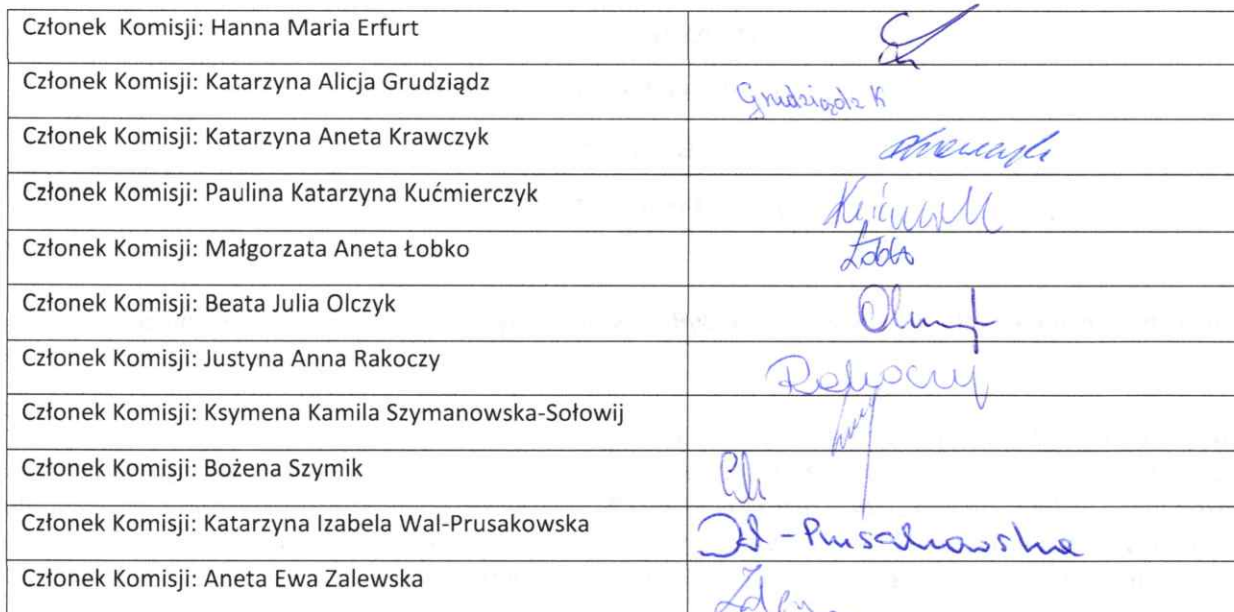 Członek  Komisji: Hanna Maria Erfurt
Członek Komisji: Katarzyna Alicja Grudziądz
Grudziądz K
Członek Komisji: Katarzyna Aneta Krawczyk
Członek Komisji: Paulina Katarzyna Kućmierczyk
Członek Komisji: Małgorzata Aneta Łobko
Łobko
Członek Komisji: Beata Julia Olczyk
Członek Komisji: Justyna Anna Rakoczy
Rakoczy
Członek Komisji: Ksymena Kamila Szymanowska-Sołowij
Członek Komisji: Bożena Szymik
Członek Komisji: Katarzyna Izabela Wal-Prusakowska
-Prusakowska
Członek Komisji: Aneta Ewa Zalewska